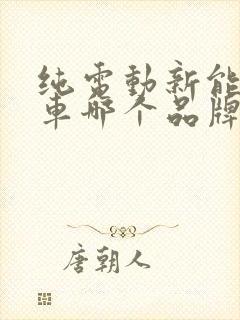 纯電動新能
車哪个品牌
唐朝人